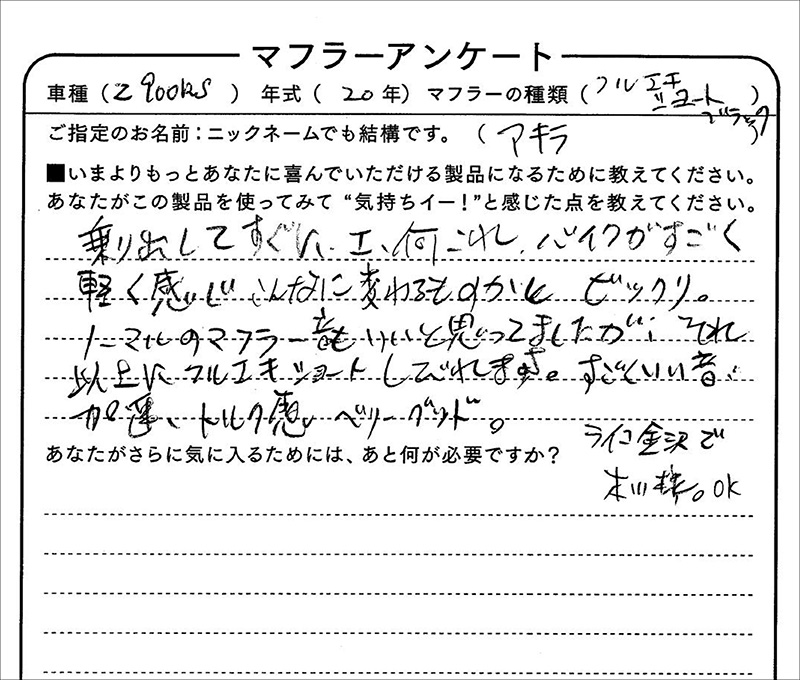 マフラーアンケート
車種（Z900RS）年式（20年）マフラーの種類（フルエキ
ショート
ブラック）
ご指定のお名前：ニックネームでも結構です。（アキラ
■いまよりもっとあなたに喜んでいただける製品になるために教えてください。
あなたがこの製品を使ってみて“気持ちイー！”と感じた点を教えてください。
乗り出してすぐに、エ、何これ、バイクがすごく
軽く感じ こんなに変わるものかと ビックリ。
ノーマルのマフラー音もいいと思ってましたが、それ
以上にフルエキショートしびれます。すごくいい音、
加速、トルク感、ベリーグッド。
あなたがさらに気に入るためには、あと何が必要ですか？
ライコ金沢で
OK